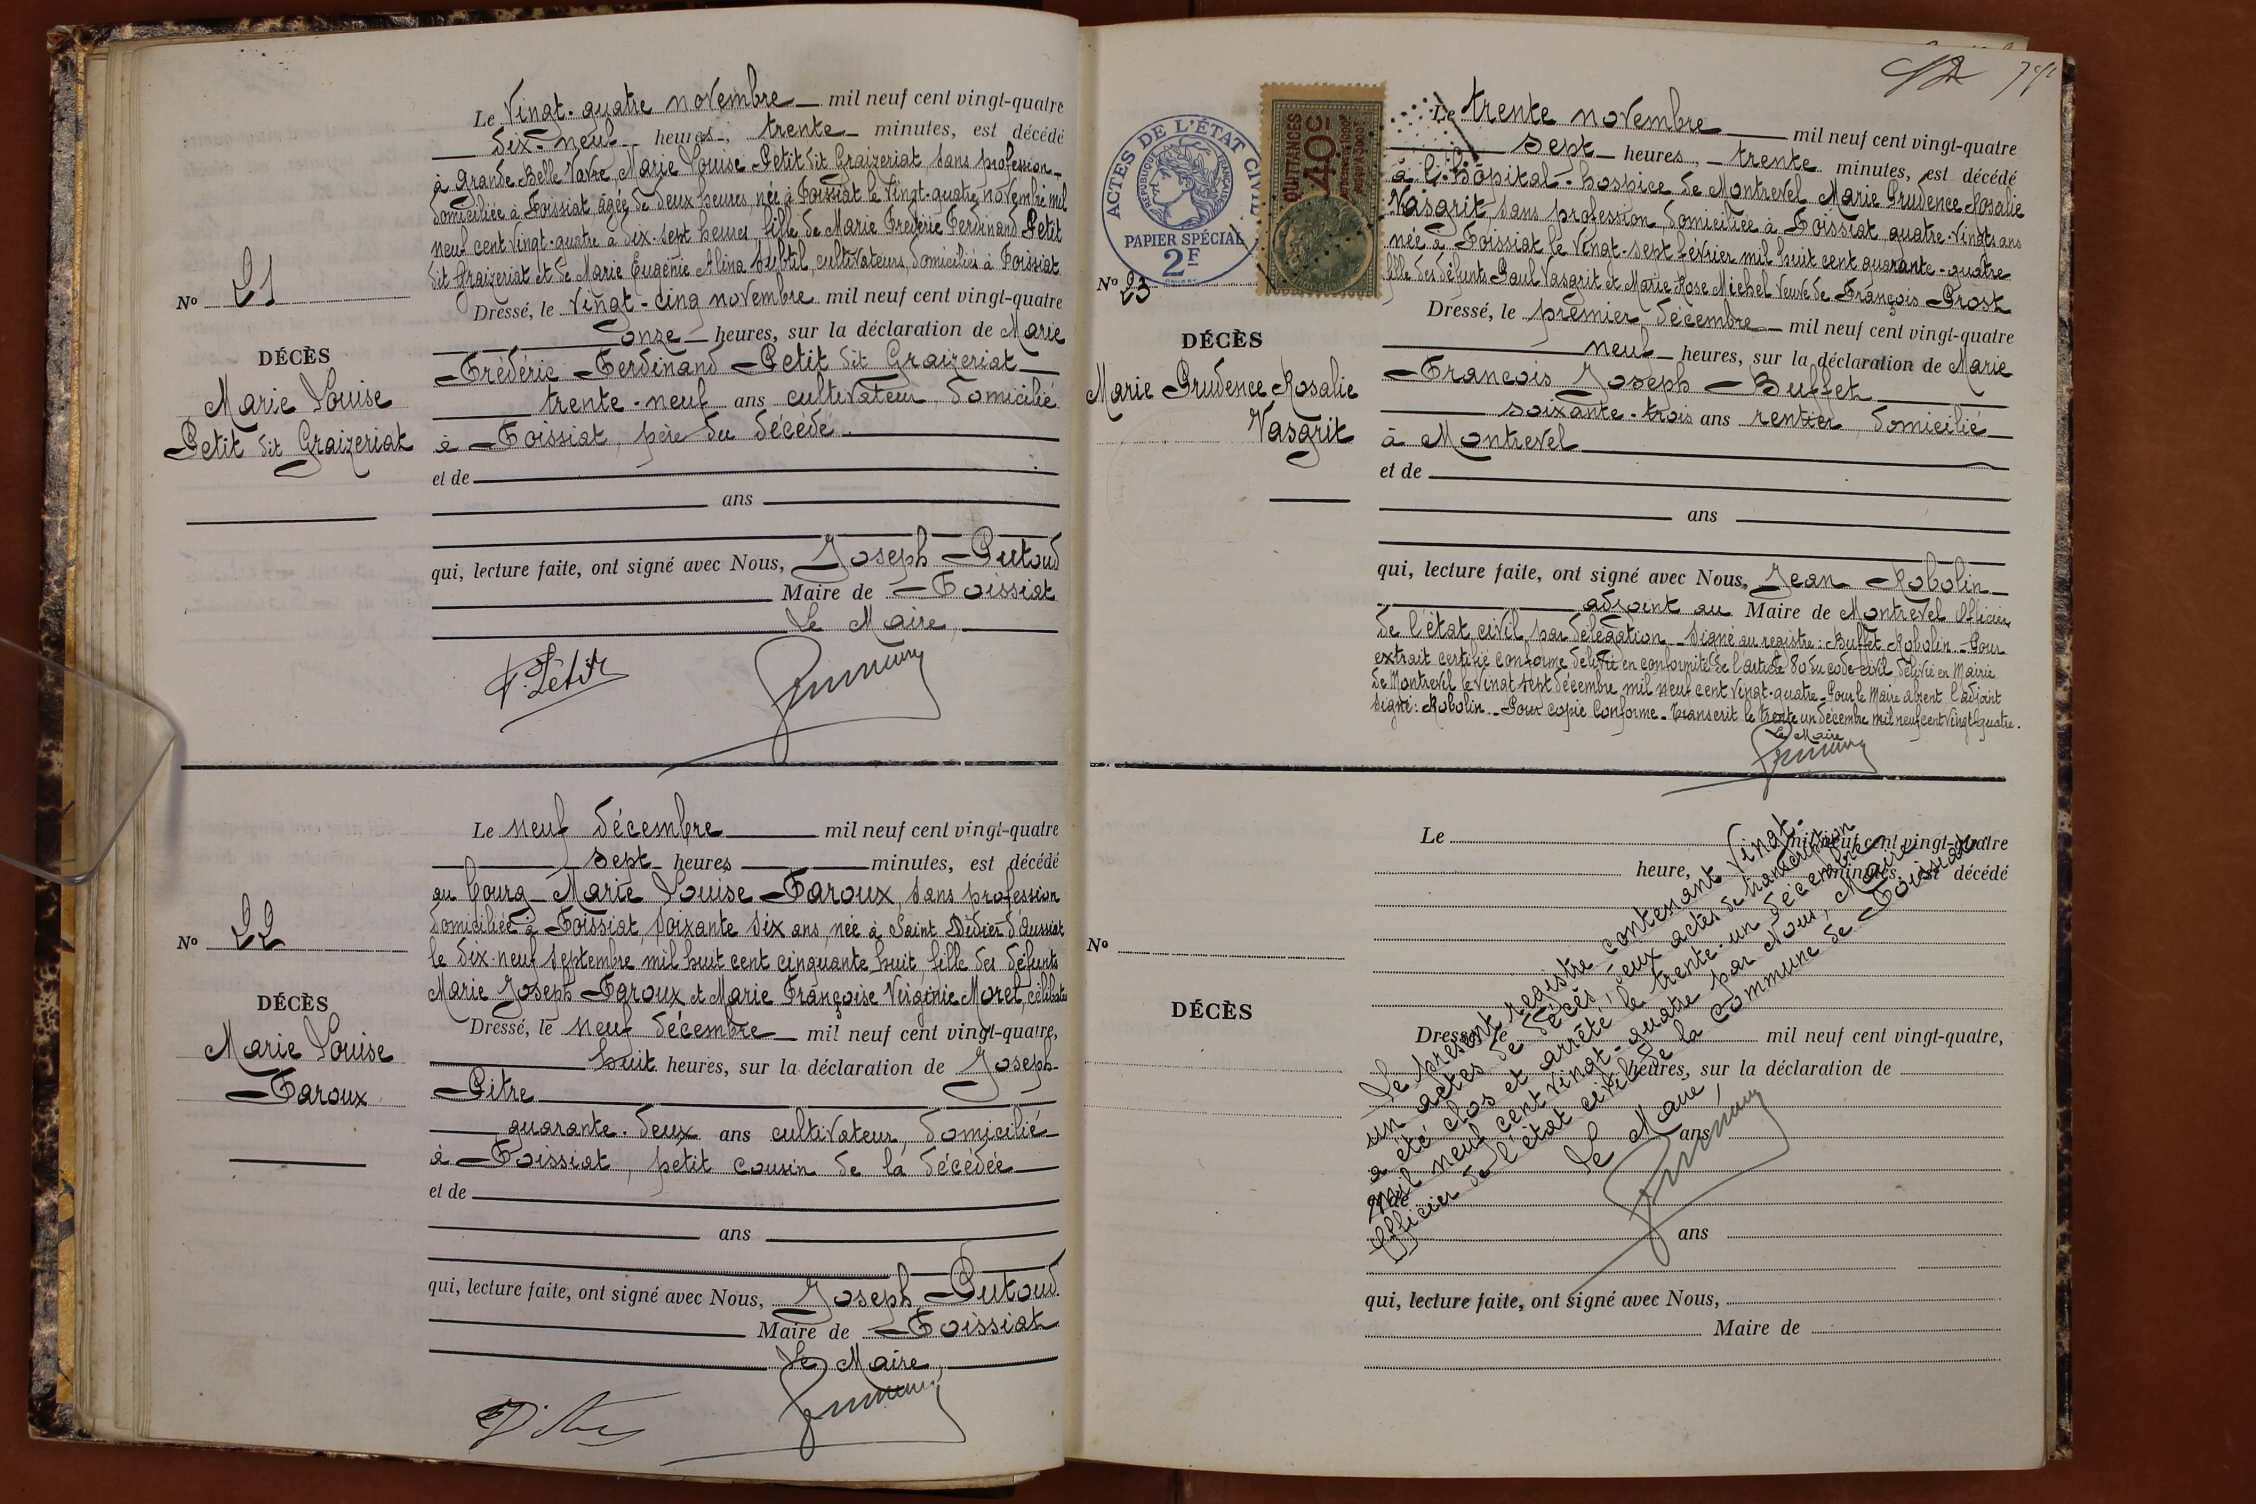 Le vingt-quatre novembre mil neuf cent vingt-quatre
dix-neuf heures, trente minutes, est décédé
à Grande Belle Vavre, Marie Louise Petit dit Graizeriat, sans profession
domiciliée à Foissiat âgée de deux heures, née à Foissiat le vingt-quatre novembre mil
neuf cent vingt-quatre à dix-sept heures, fille de Marie Fréderic Ferdinand Petit
dit Graizeriat et de Marie Eugénie Alina Subtil, cultivateurs, domiciliés à Foissiat
No 21
Dressé, le vingt-cinq novembre mil neuf cent vingt-quatre
onze heures, sur la déclaration de Marie
DÉCÈS
Frédéric Ferdinand Petit dit Graizeriat
Marie Louise
trente-neuf ans cultivateur domicilié
Petit dit Graizeriat
à Foissiat, père du décédé.
et de
ans
qui, lecture faite, ont signé avec Nous, Joseph Putoud
Maire de Foissiat
Le Maire,
F. Petit
Le neuf décembre mil neuf cent vingt-quatre
sept heures minutes, est décédé
au bourg Marie Louise Faroux, sans profession
domiciliée à Foissiat, soixante six ans, née à Saint Didier d'Aussiat
No 22
le dix-neuf septembre mil huit cent cinquante huit, fille des défunts
Marie Joseph Faroux et Marie Françoise Virginie Morel, célibataire
DÉCÈS
Dressé, le neuf décembre mil neuf cent vingt-quatre,
Marie Louise
huit heures, sur la déclaration de Joseph
Faroux
Pitre
quarante-deux ans cultivateur, domicilié
à Foissiat, petit cousin de la décédée
et de
ans
qui, lecture faite, ont signé avec Nous, Joseph Putoud
Maire de Foissiat
Le Maire,
Pitre
ACTES DE L'ÉTAT CIVIL
RÉPUBLIQUE FRANÇAISE
PAPIER SPÉCIAL
2F
QUITTANCES
40c
Le trente novembre mil neuf cent vingt-quatre
sept heures, trente minutes, est décédé
à l'hôpital-hospice de Montrevel Marie Prudence Rosalie
Vasgrit sans profession, domiciliée à Foissiat, quatre-vingts ans
née à Foissiat le vingt-sept février mil huit cent quarante-quatre
fille des défunts Paul Vasgrit et Marie Rose Michel veuve de François Prost
No 23
Dressé, le premier décembre mil neuf cent vingt-quatre
neuf heures, sur la déclaration de Marie
DÉCÈS
François Joseph Buffet
Marie Prudence Rosalie
soixante-trois ans rentier domicilié
Vasgrit
à Montrevel
et de
ans
qui, lecture faite, ont signé avec Nous, Jean Robolin
adjoint au Maire de Montrevel Officier
de l'état civil par délégation. Signé au registre : Buffet Robolin. Pour
extrait certifié conforme délivré en conformité de l'article 80 du code civil délivré en Mairie
de Montrevel le vingt sept décembre mil neuf cent vingt-quatre. Pour le Maire absent l'adjoint
signé : Robolin. Pour copie conforme. Transcrit le trente un décembre mil neuf cent vingt-quatre.
Le Maire
Le mil neuf cent vingt-quatre
heure, minutes, est décédé
No
DÉCÈS
Dressé, le mil neuf cent vingt-quatre,
heures, sur la déclaration de
ans
et de
ans
qui, lecture faite, ont signé avec Nous,
Maire de
Le présent registre contenant vingt-
un actes de décès, deux actes de transcription
a été clos et arrêté le trente-un décembre
mil neuf cent vingt-quatre par Nous, Maire
Officier de l'état civil de la Commune de Foissiat
Le Maire,